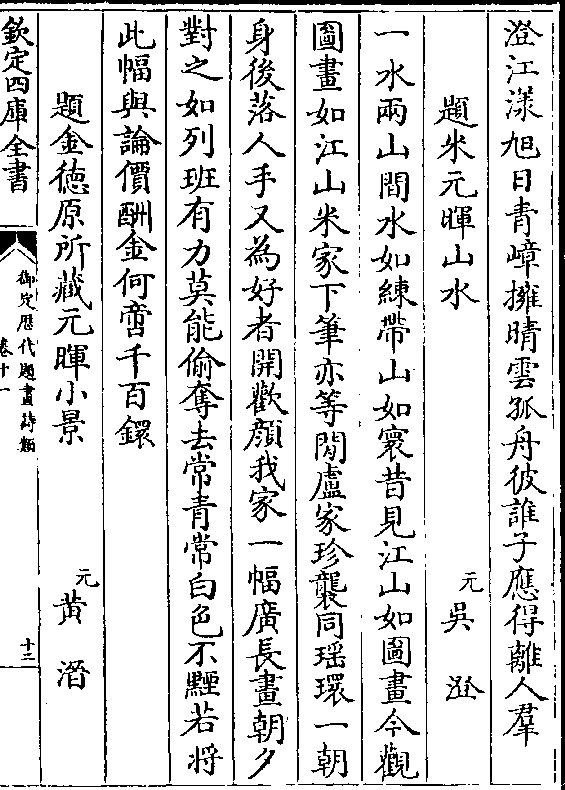 澄江漾旭日青嶂擁晴雲孤舟彼誰子應得離人羣
題米元暉山水　元 吳澄
一水兩山間水如練帶山如寰昔見江山如圖畫今觀
圖畫如江山米家下筆亦等閒盧家珍襲同瑶環一朝
身後落人手又為好者開歡顔我家一幅廣長畫朝夕
對之如列班有力莫能偷奪去常青常白色不黫若將
此幅與論價酬金何啻千百鐶
題金徳原所藏元暉小景　元 黄溍
欽定四庫全書
御定歴代題畫詩類
卷十一
十二